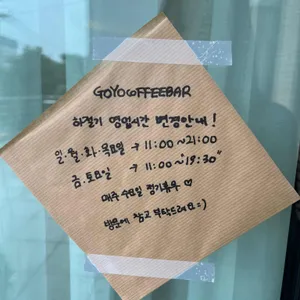 GOYOCOFFEEBAR
하절기 영업시간 변경안내!
일.월.화.목요일 → 11:00~21:00
금.토요일 → 11:00~19:30"
매주 수요일 정기휴무 ♡
방문에 참고 부탁드려요:)